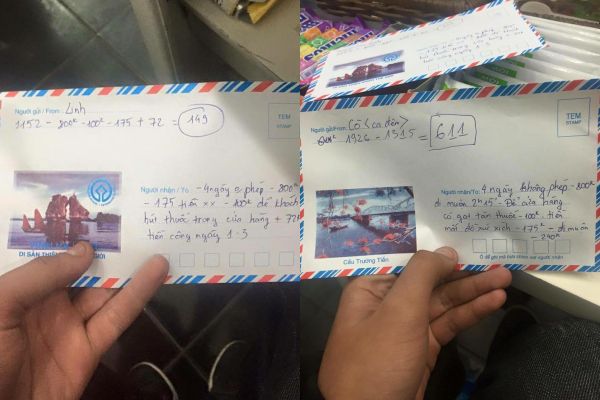 Người gửi / From: Linh
1152 - 800k - 100k - 175 + 72 = 149
TEM
STAMP
Người nhận / To: -4 ngày o phép - 800k
- 175 tiền xx - 100k để khách
hút thuốc trong cửa hàng + 72
tiền công ngày 1-3
DI SẢN THIÊN
GIỚI
Người gửi/From: Cô (ca đêm)
1926 - 1315 = 611
TEM
STAMP
Người nhận/To: 4 ngày không phép - 800k
đi muộn 2h15 - Để cửa hàng
có gạt tàn thuốc - 100k tiền
mất đồ xúc xích - 175k - đi muộn
- 240k
Cầu Trường Tiền